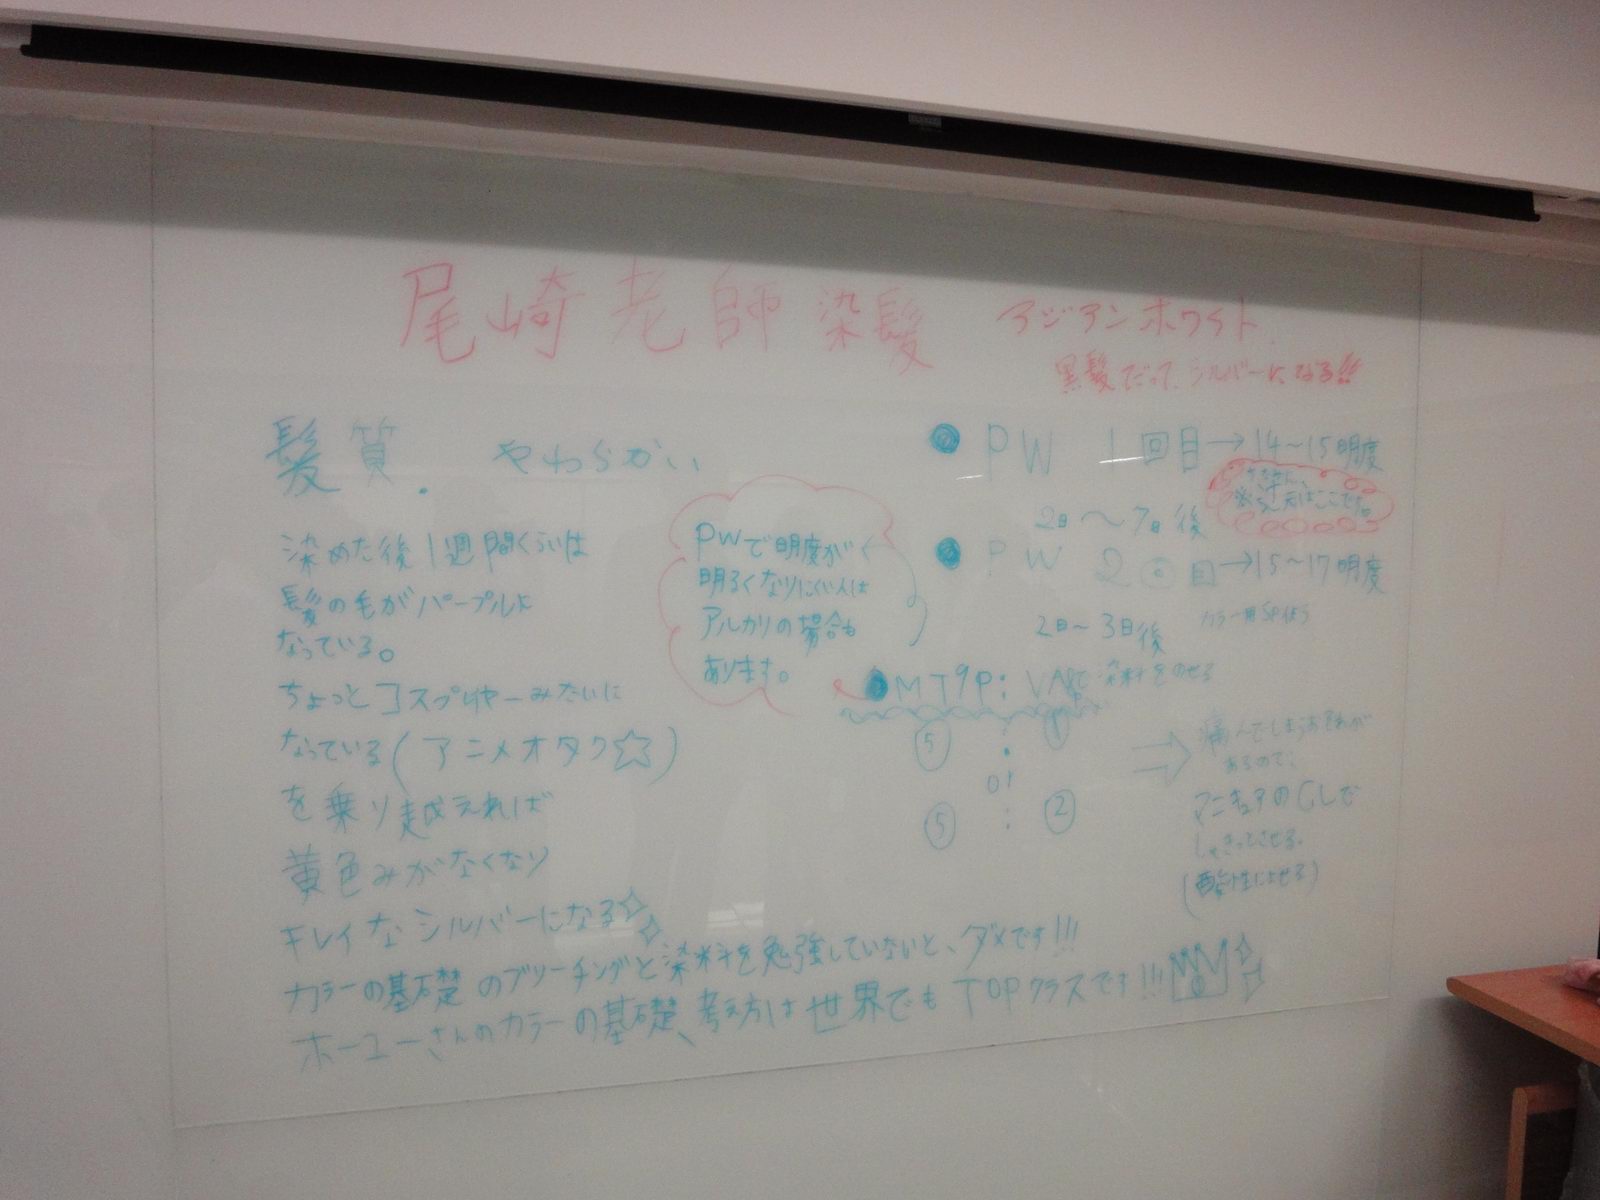 尾崎老師染髪 アジアンホワイト
黒髪だって、シルバーになる!!
髪質. やわらかい
染めた後1週間くらいは
髪の毛がパープルに
なっている。
ちょっとコスプレヤーみたいに
なっている(アニメオタク☆)
を乗り越えれば
黄色みがなくなり
キレイなシルバーになる
カラーの基礎のブリーチングと染料を勉強していないと、ダメです!!!
ホーユーさんのカラーの基礎、考え方は世界でもTOPクラスです!!!
PWで明度が
明るくなりにくい人は
アルカリの場合も
あります。
● PW 1回目→14〜15明度
2日〜7日後
● PW 2回目→15〜17明度
2日〜3日後
●MT9P: 染料をのせる
⑤ : ①
or
⑤ : ②
⇒ 痛んでしまうおそれが
あるので、
マニキュアのCLで
しゃきっとさせる。
(酸性によせる)